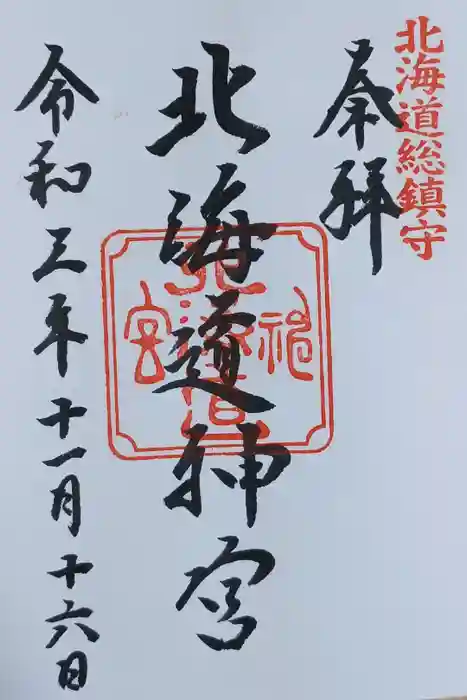 北海道総鎮守
奉拝
北海道神宮
北海道
神宮
令和三年十一月十六日